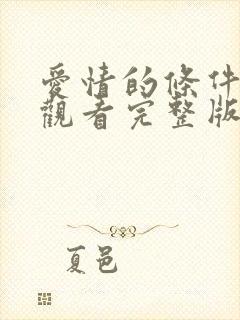 愛情的條件
觀看完整版
夏邑